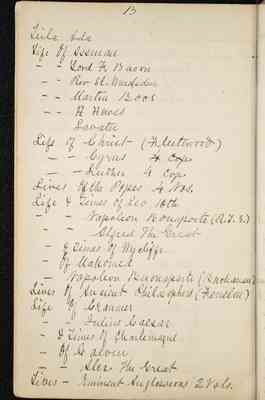 13
Leila Ada
Life Of Osseman
- - Lord Fr Bacon
- - Rev Sl. Marsden
- - Martin Boos
- - A Hawes
Lavater
Life of Christ - (Fleetwood)
- - Cyrus 4 Cop
- - Luther 4 Cop
Lives Of the Popes 4 Nos.
Life & Times of Leo 10th
- - Napoleon Bonaparte (R.T.S.)
- Alfred The Great
- & Times Of Wycliffe
- Of Mahomed
- Napoleon Buonaparte
Lives Of Ancient Philosophers (Fenelon)
Life Of Cranmer
- - Julius Caesar
- & Times Of Charlemagne
- Of Calvin
- - Alex The Great
Lives - Eminent Anglosaxons 2 Vols.